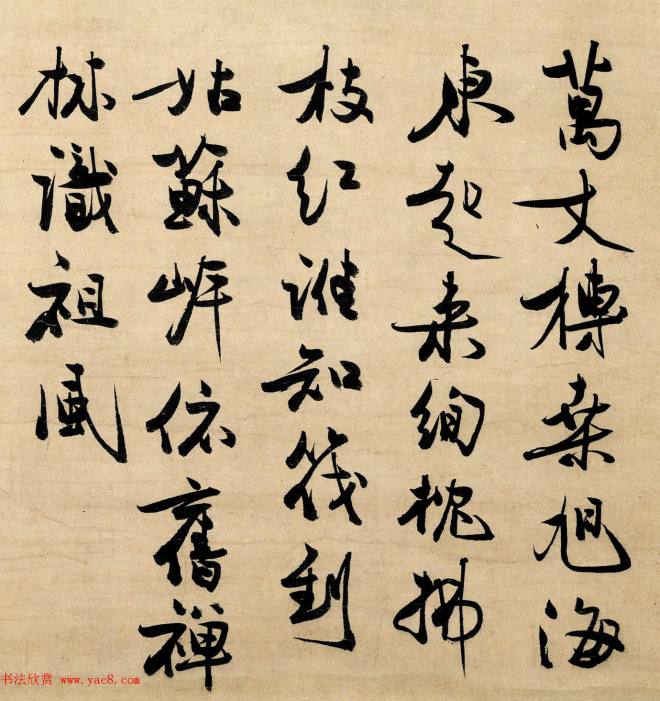 萬丈榑桑旭海
東起来絢拂
枝紅誰知筏到
姑蘇岸依舊禪
林識祖風
书法欣赏 www.yac8.com